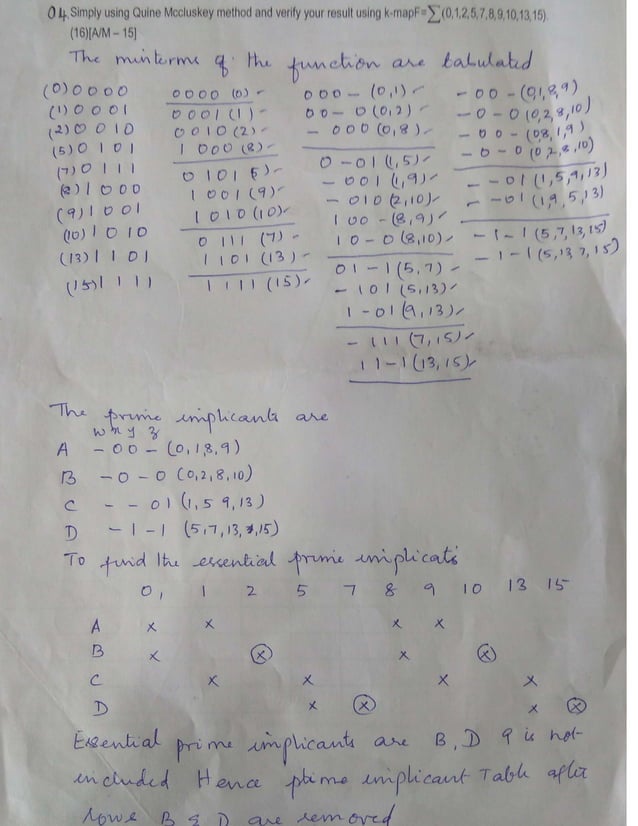 04. Simply using Quine Mccluskey method and verify your result using k-mapF=∑(0,1,2,5,7,8,9,10,13,15).
(16)[A/M – 15]
The minterms of the function are tabulated
(0) 0 0 0 0
(1) 0 0 0 1
(2) 0 0 1 0
(5) 0 1 0 1
(7) 0 1 1 1
(8) 1 0 0 0
(9) 1 0 0 1
(10) 1 0 1 0
(13) 1 1 0 1
(15) 1 1 1 1
0000 (0) ✓
0001 (1) ✓
0010 (2) ✓
1000 (8) ✓
0101 5) ✓
1001 (9) ✓
1010 (10) ✓
0111 (7) ✓
1101 (13) ✓
1111 (15) ✓
000– (0,1) ✓
00–0 (0,2) ✓
–000 (0,8) ✓
0–01 (1,5) ✓
–001 (1,9) ✓
–010 (2,10) ✓
100– (8,9) ✓
10–0 (8,10) ✓
01–1 (5,7) ✓
–101 (5,13) ✓
1–01 (9,13) ✓
–111 (7,15) ✓
11–1 (13,15) ✓
–00– (0,1,8,9)
–0–0 (0,2,8,10)
–00– (0,8,1,9)
–0–0 (0,2,8,10)
––01 (1,5,9,13)
––01 (1,9,5,13)
–1–1 (5,7,13,15)
–1–1 (5,13,7,15)
The prime implicants are
w x y z
A –00– (0,1,8,9)
B –0–0 (0,2,8,10)
C ––01 (1,5 9,13)
D –1–1 (5,7,13,15)
To find the essential prime implicats
0, 1 2 5 7 8 9 10 13 15
A x x x x
B x ⊗ x ⊗
C x x x x
D x ⊗ x ⊗
Essential prime implicants are B, D 9 is not-
included Hence prime implicant Table after
rows B & D are removed